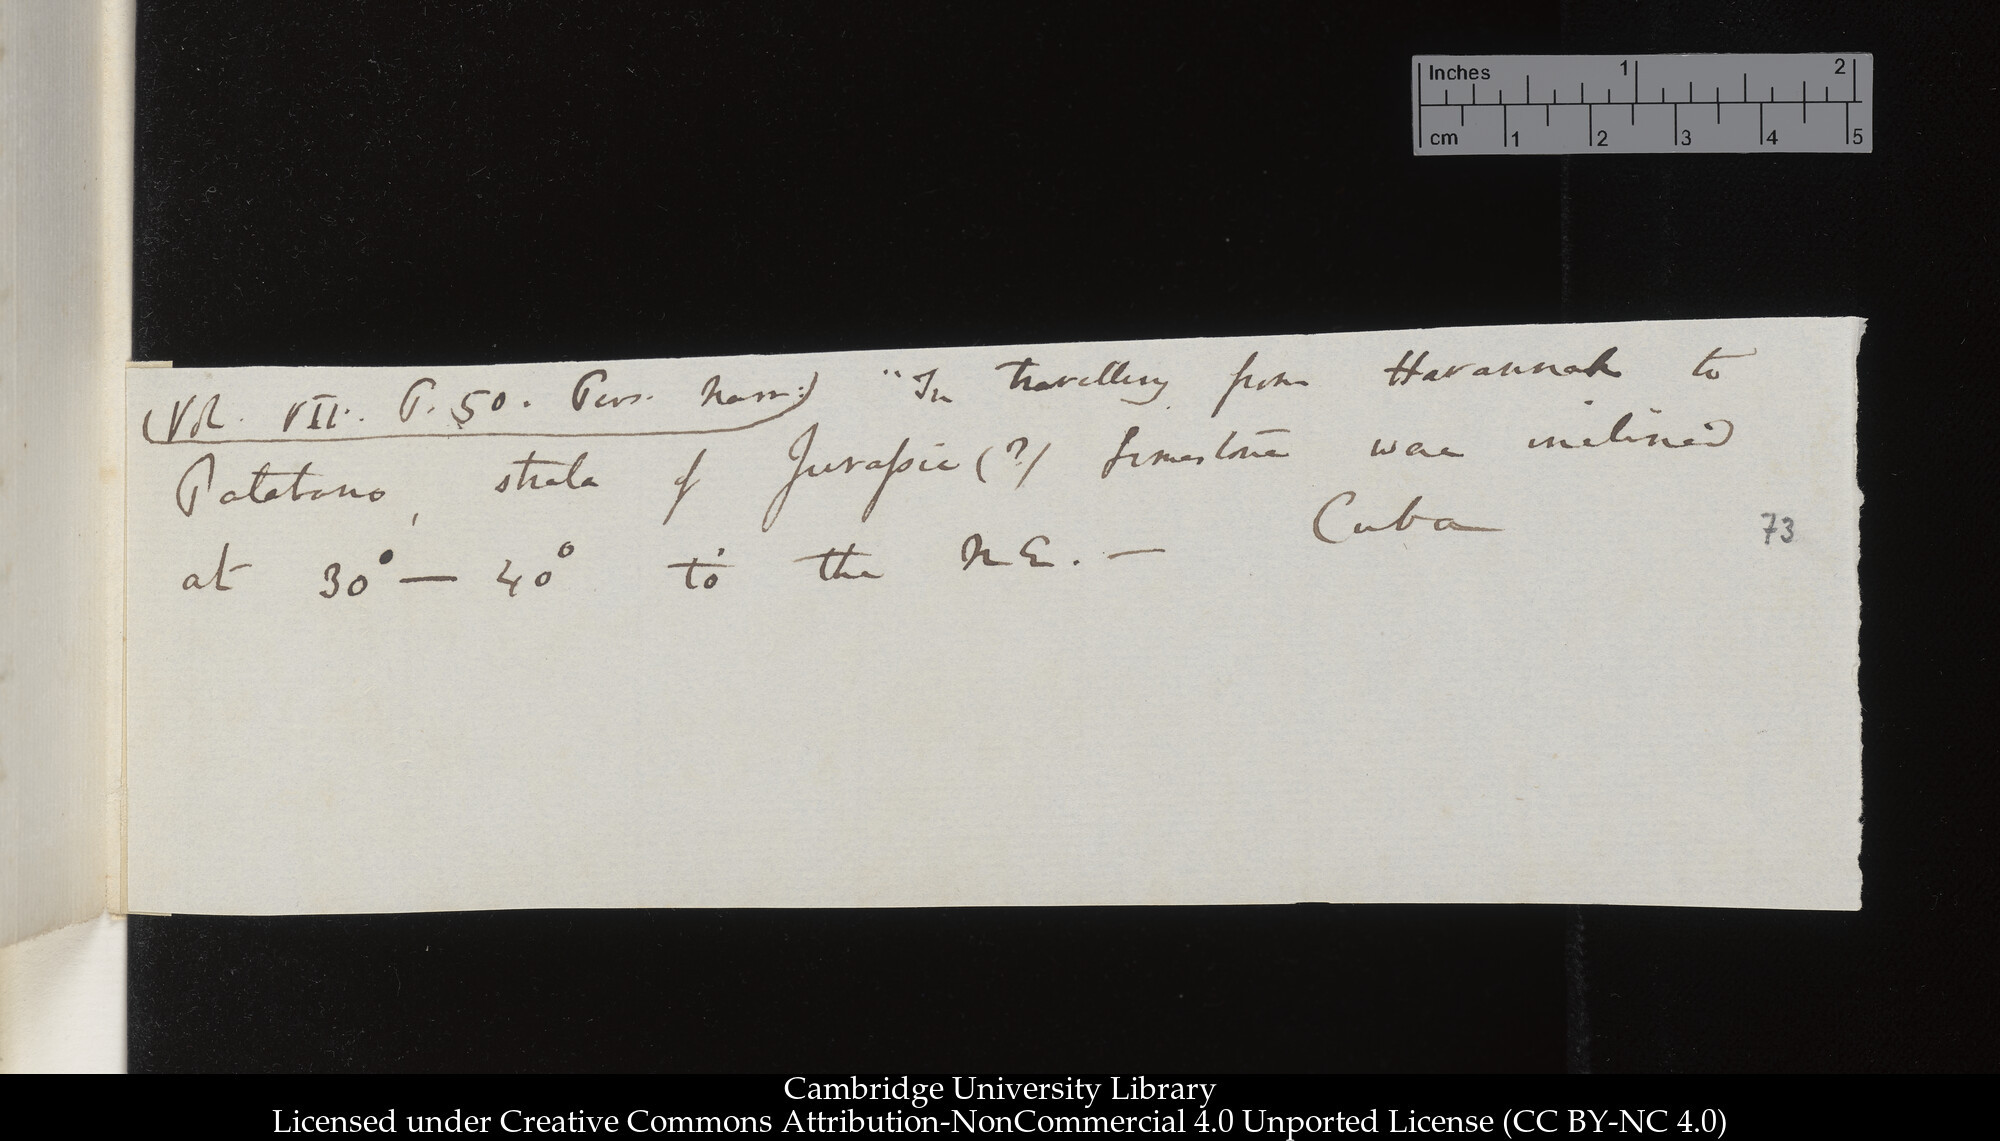 Inches 1 2
cm 1 2 3 4 5
(Vol. VII. P. 50. Pers. Narr:) "In travelling from Havannah to
Batabano, strata of Jurassic (?) limestone were inclined
at 30° — 40° to the N E. — Cuba
73
Cambridge University Library
Licensed under Creative Commons Attribution-NonCommercial 4.0 Unported License (CC BY-NC 4.0)